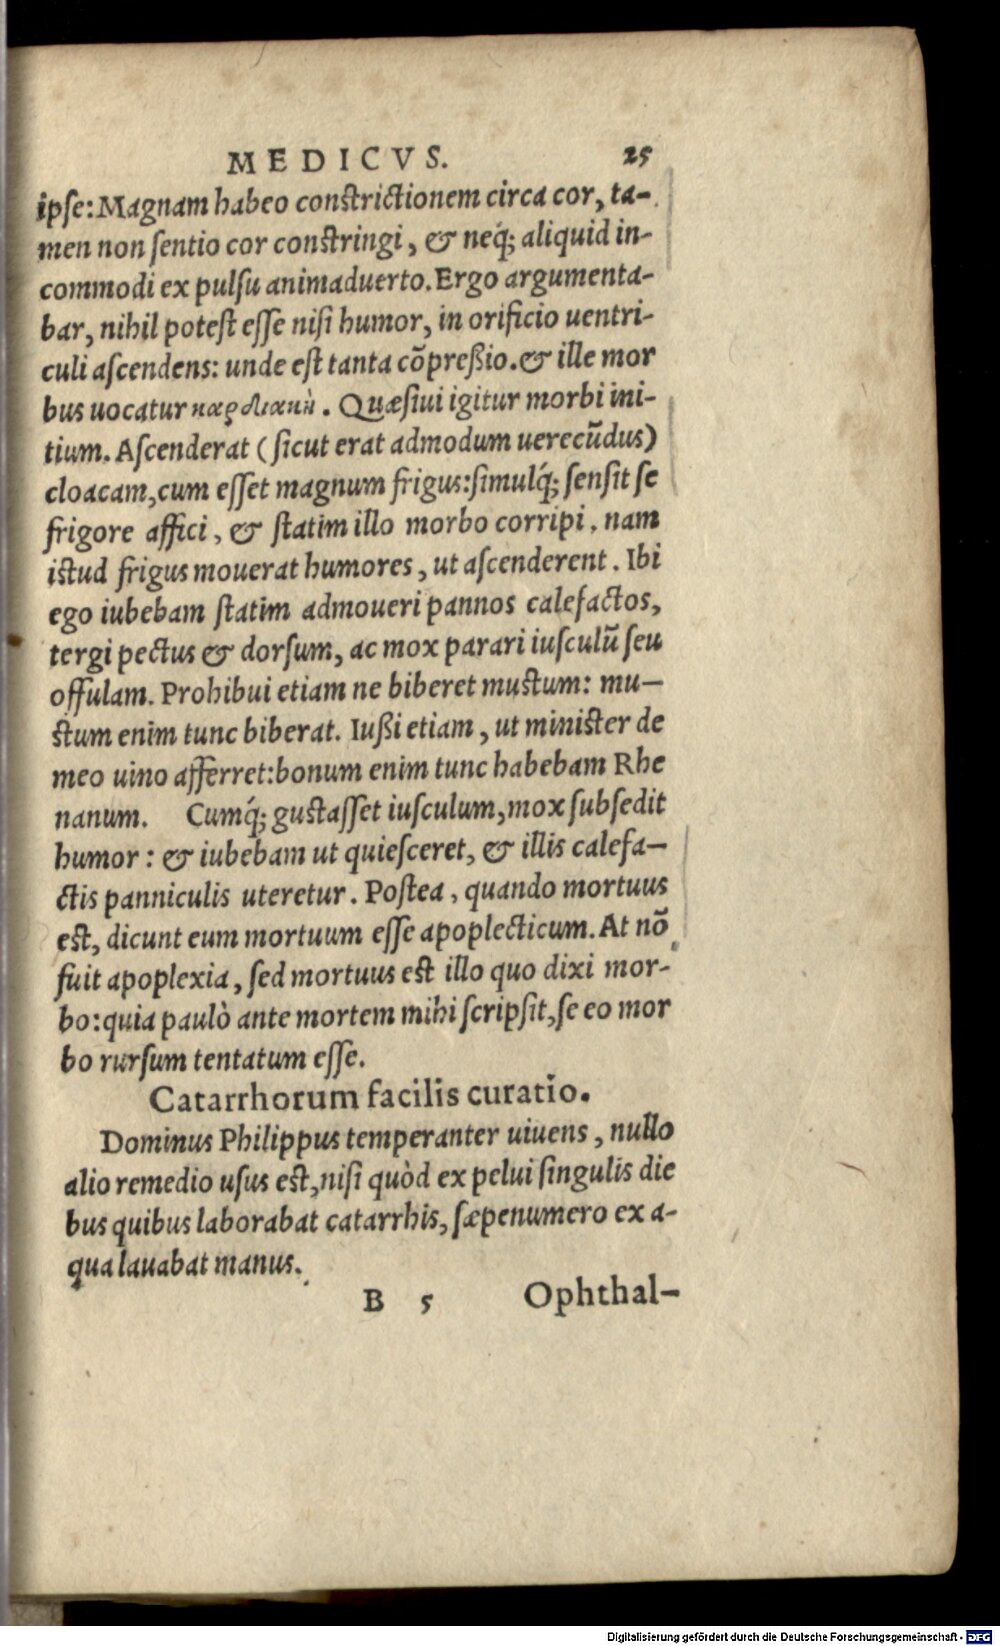 MEDICVS. 25
ipſe: Magnam habeo constrictionem circa cor, ta-
men non ſentio cor constringi, & neq́; aliquid in-
commodi ex pulſu animaduerto. Ergo argumenta-
bar, nihil potest eſſe niſi humor, in orificio uentri-
culi aſcendens: unde est tanta cõpreßio. & ille mor
bus uocatur καρδιακὴ. Quæſiui igitur morbi ini-
tium. Aſcenderat (ſicut erat admodum uerecũdus)
cloacam, cum eſſet magnum frigus: ſimulq́; ſenſit ſe
frigore affici, & ſtatim illo morbo corripi, nam
istud frigus mouerat humores, ut aſcenderent. Ibi
ego iubebam ſtatim admoueri pannos calefactos,
tergi pectus & dorſum, ac mox parari iuſculũ ſeu
offulam. Prohibui etiam ne biberet mustum: mu-
stum enim tunc biberat. Iußi etiam, ut minister de
meo uino afferret: bonum enim tunc habebam Rhe
nanum. Cumq́; gustaſſet iuſculum, mox ſubſedit
humor: & iubebam ut quieſceret, & illis calefa-
ctis panniculis uteretur. Poſtea, quando mortuus
est, dicunt eum mortuum eſſe apoplecticum. At nõ
fuit apoplexia, ſed mortuus est illo quo dixi mor-
bo: quia paulò ante mortem mihi ſcripſit, ſe eo mor
bo rurſum tentatum eſſe.
Catarrhorum facilis curatio.
Dominus Philippus temperanter uiuens, nullo
alio remedio uſus est, niſi quòd ex pelui ſingulis die
bus quibus laborabat catarrhis, ſæpenumero ex a-
qua lauabat manus.
B 5 Ophthal-
Digitalisierung gefördert durch die Deutsche Forschungsgemeinschaft - DFG